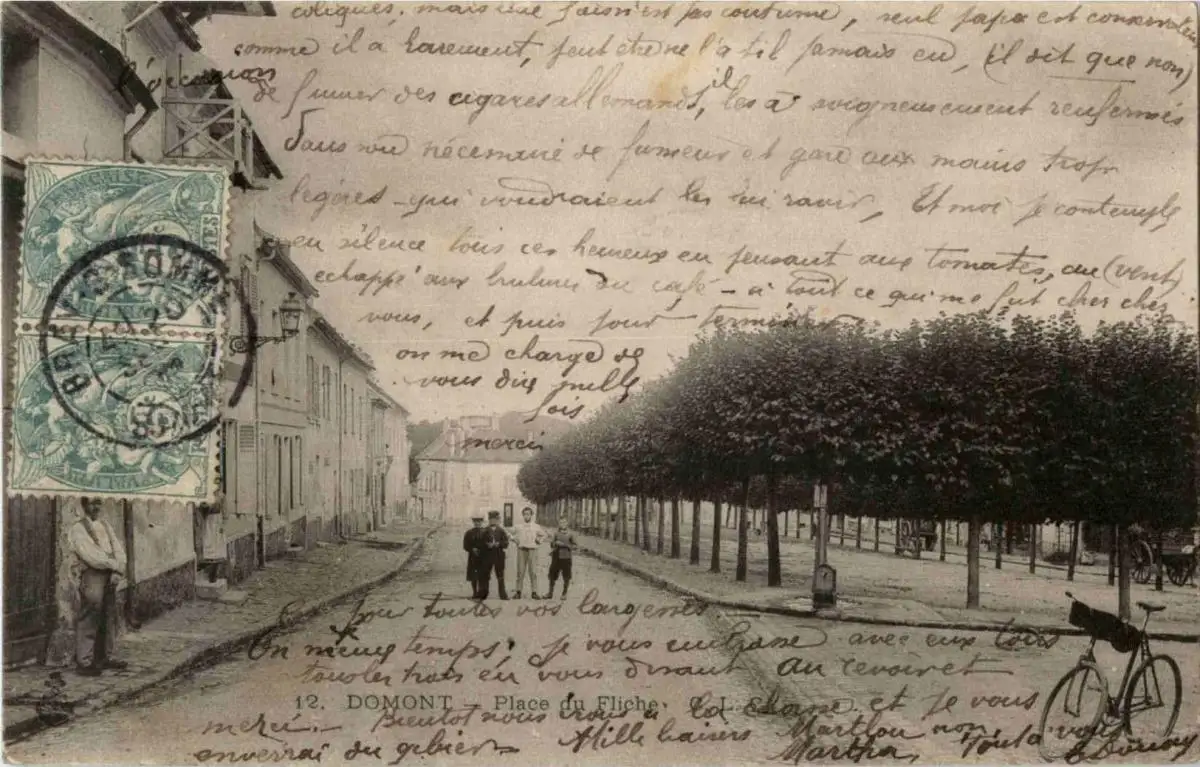 coliques, mais une fois n'est pas coutume, seul papa est
comme il a rarement, peut etre ne l'a t il jamais eu, (il dit que non)
l'occasion
de fumer des cigares allemands, il les a soigneusement renfermés
dans son nécessaire de fumeur et gare aux mains trop
légères qui voudraient les lui ravir, Et moi je contemple
en silence tous ces heureux en pensant aux tomates, au (vent)
echappé aux du café - à tout ce qui me fut cher chez
vous, et puis pour terminer
on me charge de
vous dire mille
fois
merci
pour toutes vos largesses
En même temps, je vous embrasse avec eux tous
tous les trois en vous disant au revoir et
12. DOMONT - Place du Fliche. C. L.
merci - Bientot nous irons à la chasse et je vous
enverrai du gibier - Mille baisers Marthou non Tout à vous
Martha
BRAY-S-SOMME